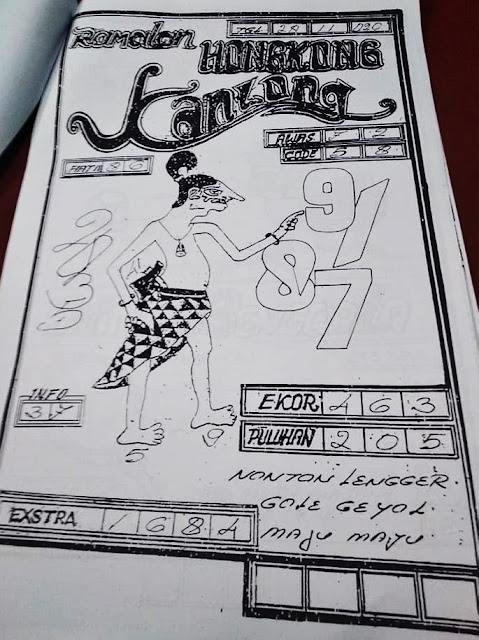 Ramalan TGL 28 11 020
HONGKONG
Kantong
AWAS 7 2
CODE 5 8
MATI 8 6
9/
87
INFO
3 7
EKOR 4 6 3
PULUHAN 2 0 5
5 9
NONTON LENGGER.
GOLE GEYOL.
MAJU MAJU
EXSTRA 1 6 8 4